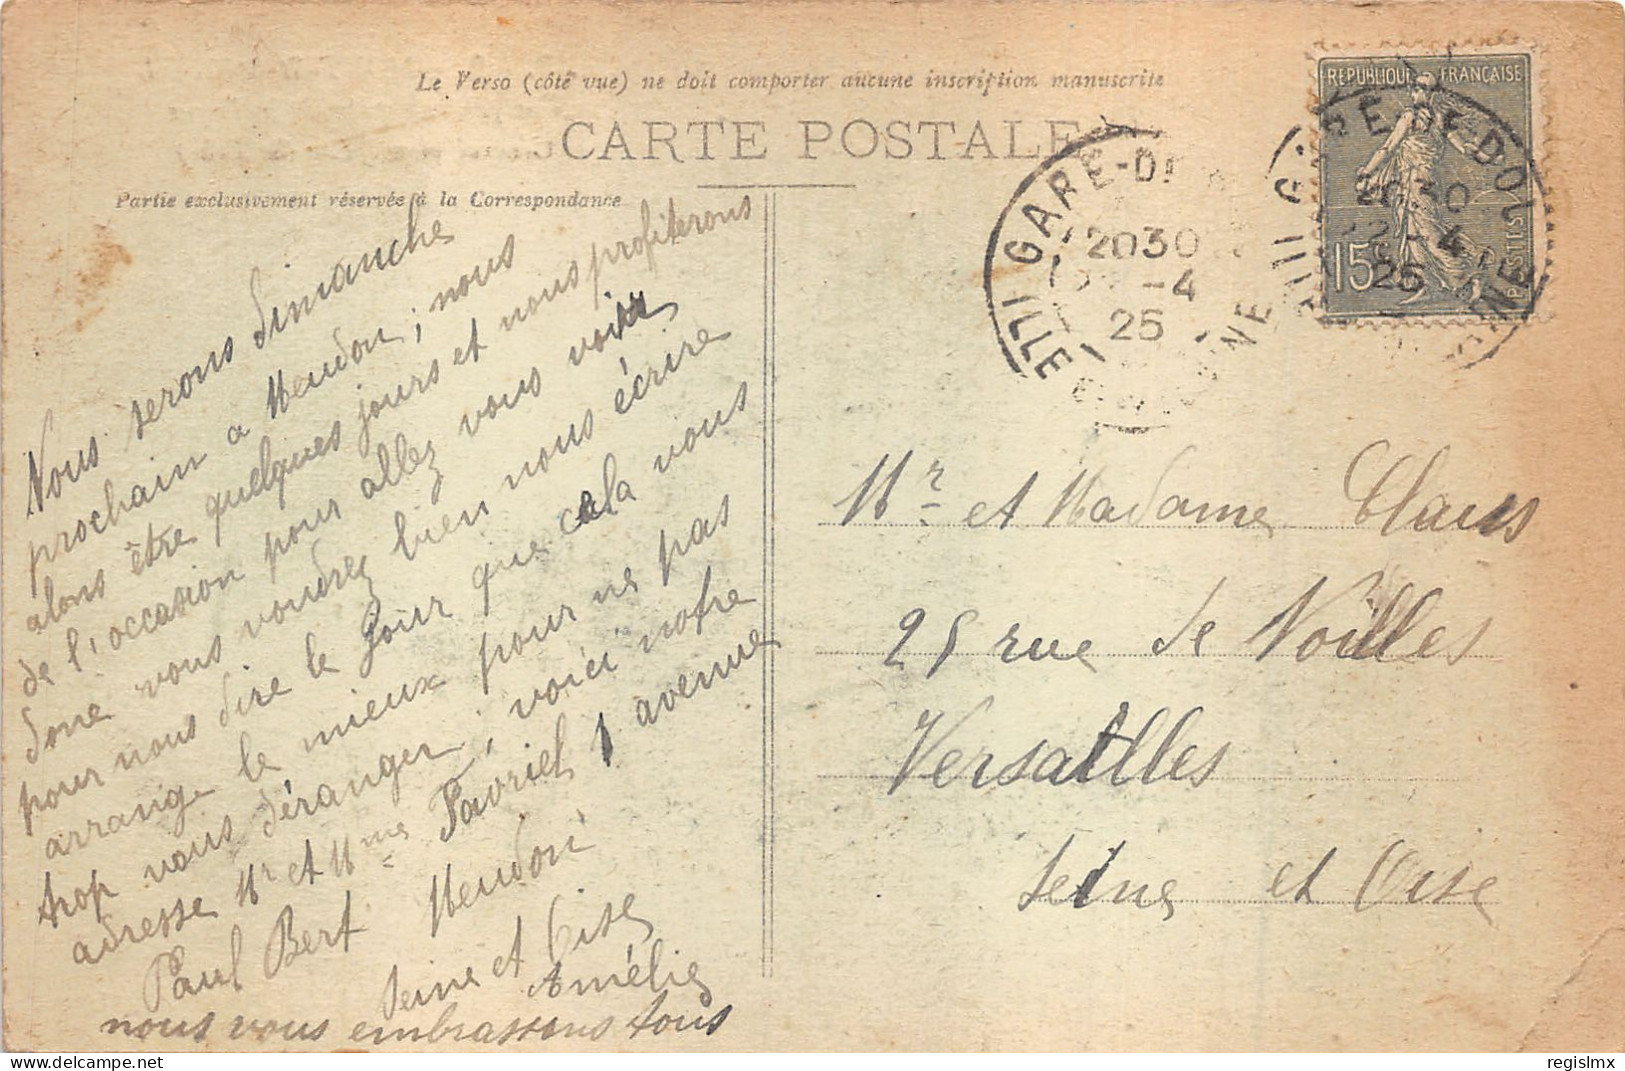 Le Verso (côté vue) ne doit comporter aucune inscription manuscrite
CARTE POSTALE
Partie exclusivement réservée à la Correspondance
Nous serons dimanche
prochain a Meudon ; nous
alons être quelques jours et nous profiterons
de l'occasion pour allez vous voir
donc vous voudrez bien nous écrire
pour nous dire le jour que cela vous
arrange le mieux pour ne pas
trop vous déranger ; voici notre
adresse Mr et Mme Favriel 1 avenue
Paul Bert Meudon
Seine et Oise
Amélie
nous vous embrassons tous
REPUBLIQUE FRANÇAISE
15c
POSTES
GARE-DE
2030
-4
25
GARE DE-DOL
2030
22-4
25
Mr et Madame Claus
25 rue de Noilles
Versailles
Seine et Oise
regislmx